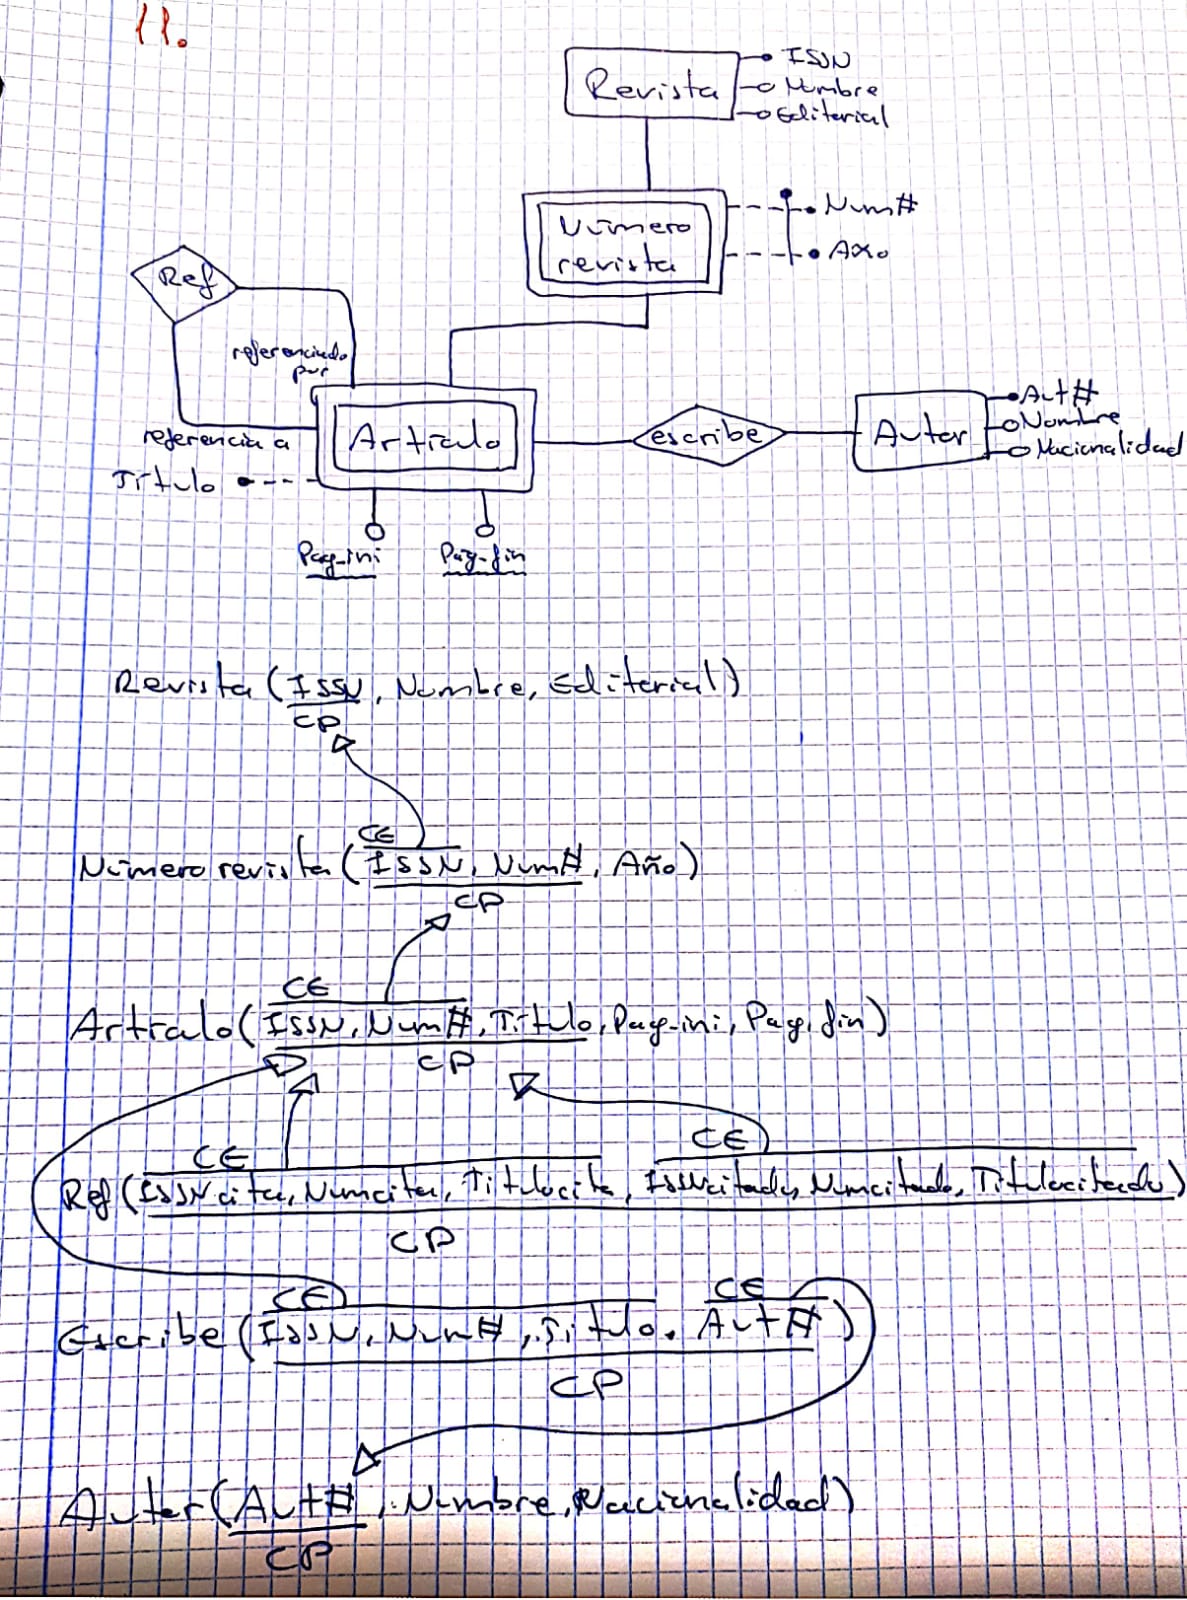 11.
Revista
ISSN
Nombre
Editorial
Número
revista
Num#
Año
Ref
referenciado
por
Artículo
referencia a
Título
Pag-ini
Pag-fin
escribe
Autor
Aut#
Nombre
Nacionalidad
Revista (ISSN, Nombre, Editorial)
CP
CE
Número revista (ISSN, Num#, Año)
CP
CE
Artículo (ISSN, Num#, Título, Pag-ini, Pag. fin)
CP
CE CE
Ref (ISSNcita, Numcita, Titulocita, ISSNcitado, Numcitado, Titulocitado)
CP
CE CE
Escribe (ISSN, Num#, Título, Aut#)
CP
Autor (Aut#, Nombre, Nacionalidad)
CP